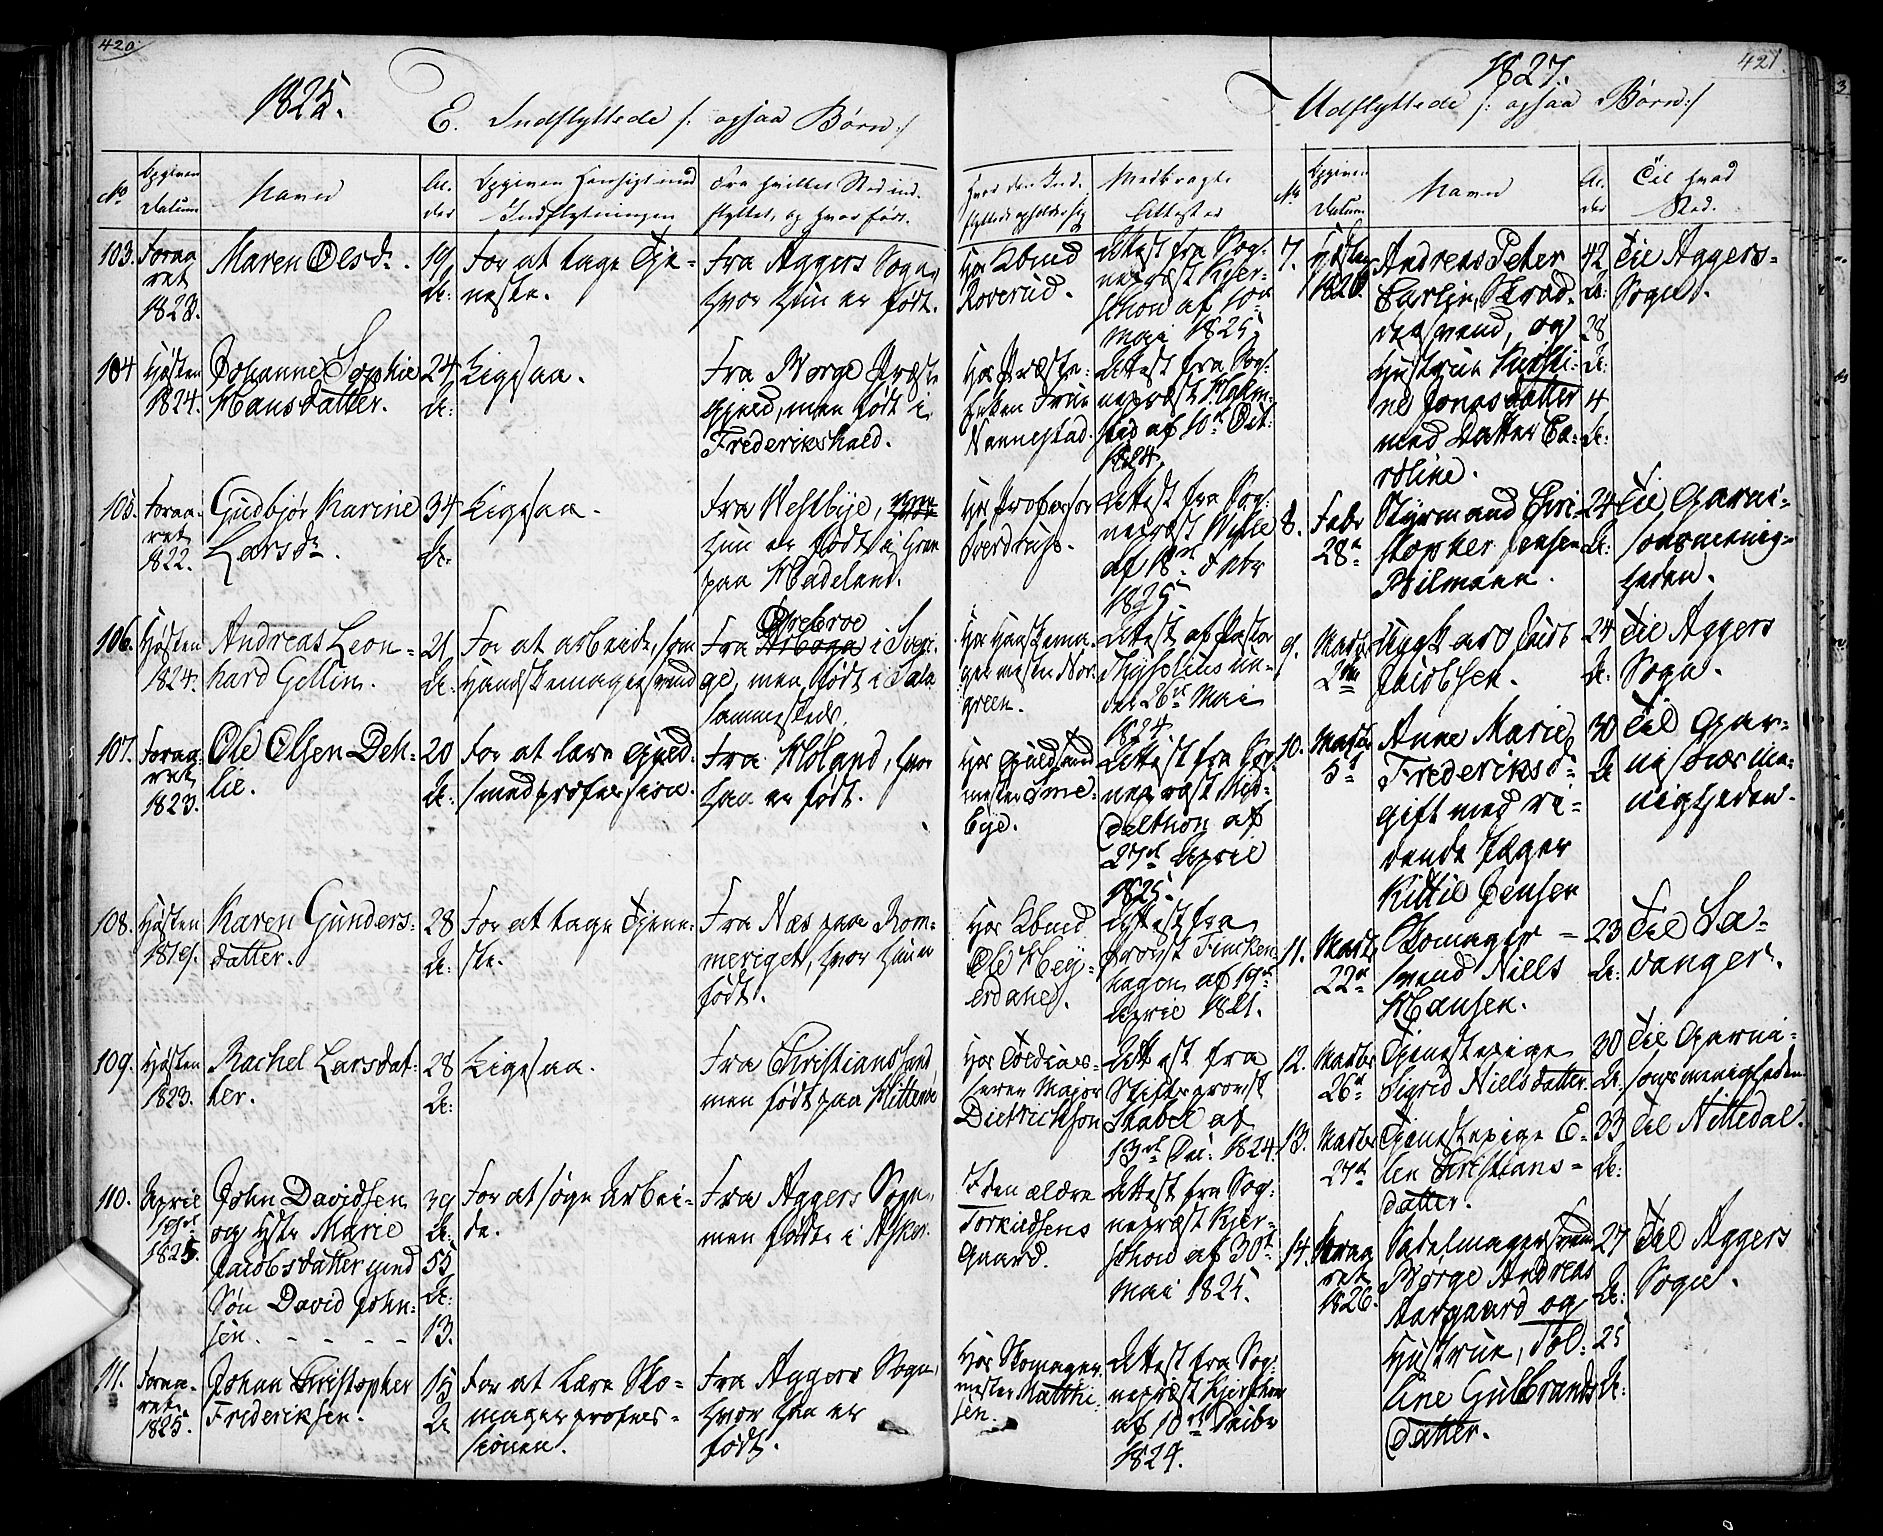 420.
1825.
E. Indflyttede /: ogsaa Børn :/
No
Opgiven
Datum
Navn
Al-
der
Opgiven Hensigt med
Indflytningen
Fra hvilket Sted ind-
flyttet, og hvor født.
Hvor den Ind-
flyttede opholder sig
Medbragte
Attester
103.
Foraa-
ret
1823.
Maren Olsd.
19
A:
For at tage Tje-
neste.
Fra Aggers Sogn,
hvor hun er født.
Hos Kbmd
Roverud.
Attest fra Sog-
nepræst Kjer-
schow af 10de
Mai 1825.
104
Høsten
1824.
Johanne Sophie
Hansdatter.
24
A:
Ligesaa.
Fra Borge Præste
Gjeld, men født i
Frederikshald.
Hos Præste-
Enken Frue
Nannestad.
Attest fra Sog-
nepræst
af 10de Oct:
1824.
105.
Foraa-
ret
1822.
Gudbjør Karine
Larsdr.
34
A:
Ligesaa.
Fra Westbye, hvor
hun er født i Gran
paa Hadeland.
Hos Professor
Sverdrup.
Attest fra Sog-
nepræst
af 18de Febr
1825.
106.
Høsten
1824.
Andreas Leon-
hard Gellin.
21
A:
For at arbeide, som
Handskemagersvend
Ørebroe
Fra Arboga i Sveri-
ge, men født i Sala
sammesteds.
Hos Handskema-
germester Nor-
green.
Attest af Pastor
Thyselius un-
der 26de Mai
1824.
107.
Foraa-
ret
1823.
Ole Olsen Deh-
lie.
20
A:
For at lære Guld-
smedprofession.
Fra Høland, hvor
han er født.
Hos Guldsmed
mester Tme-
bye.
Attest fra Sog-
nepræst Mid-
delthon af
27de April
1825.
108.
Høsten
1819.
Karen Gunders-
datter.
28
A:
For at tage Tjene-
ste.
Fra Næs paa Rom-
meriget, hvor hun er
født.
Hos Kbmd
Ole Hey-
erdahl.
Attest fra
Provst Finchen-
hagen af 19de
April 1821.
109.
Høsten
1823.
Rachel Larsdat-
ter.
28
A:
Ligesaa.
Fra Christianssand
men født paa Hitterøe
Hos Toldcas-
serer Major
Dietrichson
Attest fra
Stiftsprovst
Stabel af
13de Dec: 1824.
110.
April
1825.
John Davidsen
og Hstr Marie
Jacobsdatter med
Søn David John-
sen. - - - -
39
A:
55
A:
13.
For at søge Arbei-
de.
Fra Aggers Sogn,
men fødte i Asker.
I den ældre
Torkildsens
Gaard.
Attest fra Sog-
nepræst Kjer-
schow af 30te
Mai 1825.
111.
Foraa-
ret
1825.
Johan Christopher
Frederiksen.
15
A
For at lære Sko-
magerprofes-
sionen.
Fra Aggers Sogn,
hvor han er
født.
Hos Skomager-
mester Matthi-
sen.
Attest fra Sog-
nepræst Kjerschow
af 10de Decbr
1824.
421.
1827.
Udflyttede /: ogsaa Børn :/
No
Opgiven
Datum
Navn
Al-
der
Til hvad
Sted.
7.
Høsten
1826
Andreas Peter
Carlin, Skræd-
dersvend, og
Hustrue Kirsti-
ne Jonasdatter
med Datter Ca-
roline.
42
A:
28
A:
4
A:
Til Aggers-
Sogn.
8.
Febr
28de
Styrmand Chri-
stopher Jensen
Bilmann.
24
A:
Til Garni-
sonsmenig-
heden.
9.
Marts
2den
Ungkarl Lars
Jacobsen.
24
A:
Til Aggers
Sogn.
10.
Marts
5te
Anne Marie
Frederiksdr
gift med ri-
dende Jæger
Kittil Jensen
30
A
Til Gar-
nisonsme-
nigheden.
11.
Marts
22de
Skomager-
svend Niels
Hansen.
23
A:
Til Sta-
vanger.
12.
Marts
26de
Tjenestepige
Sigrid Nielsdatter.
30
A:
Til Garni-
sonsmenigheden
13.
Marts
27de
Tjenestepige E-
len Christians-
datter.
33
A:
Til Nittedal.
14.
Foraa-
ret
1826.
Sadelmagersvend
Børge Andreas
Aargaard og
Hustrue, Pol-
line Gulbrands-
datter.
27
A:
25
A:
Til Aggers
Sogn.